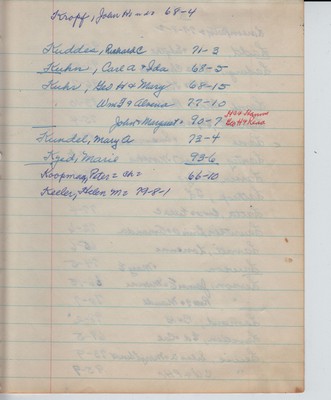 Kropf, John H 68-4
Kuddes, Richard C 71-3
Kuhn, Carl A + Ida 68-5
Kuhr, Geo H + Mary 68-15
Wm F + Alvena 77-10
John + Margaret = 90-7
Geo H +
Kundel, Mary A. 73-4
Marie 93-6
Koopman, Peter = 66-10
Keeler, Helen M = 79-8-1